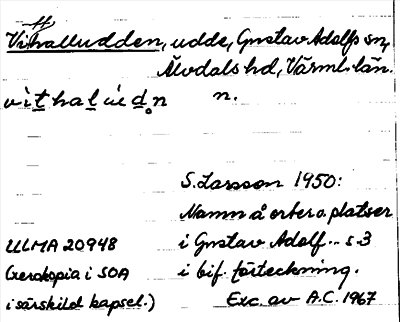 Vithalludden, udde, Gustav Adolfs sn,
Älvdals hd, Värml. län.
vithalúdn n.
S. Larsson 1950:
Namn å orter o. platser
i Gustav Adolf.. s. 3
i bif. förteckning.
Exc. av A.C. 1967
ULMA 20948
(Xerokopia i SOA
i särskild kapsel.)